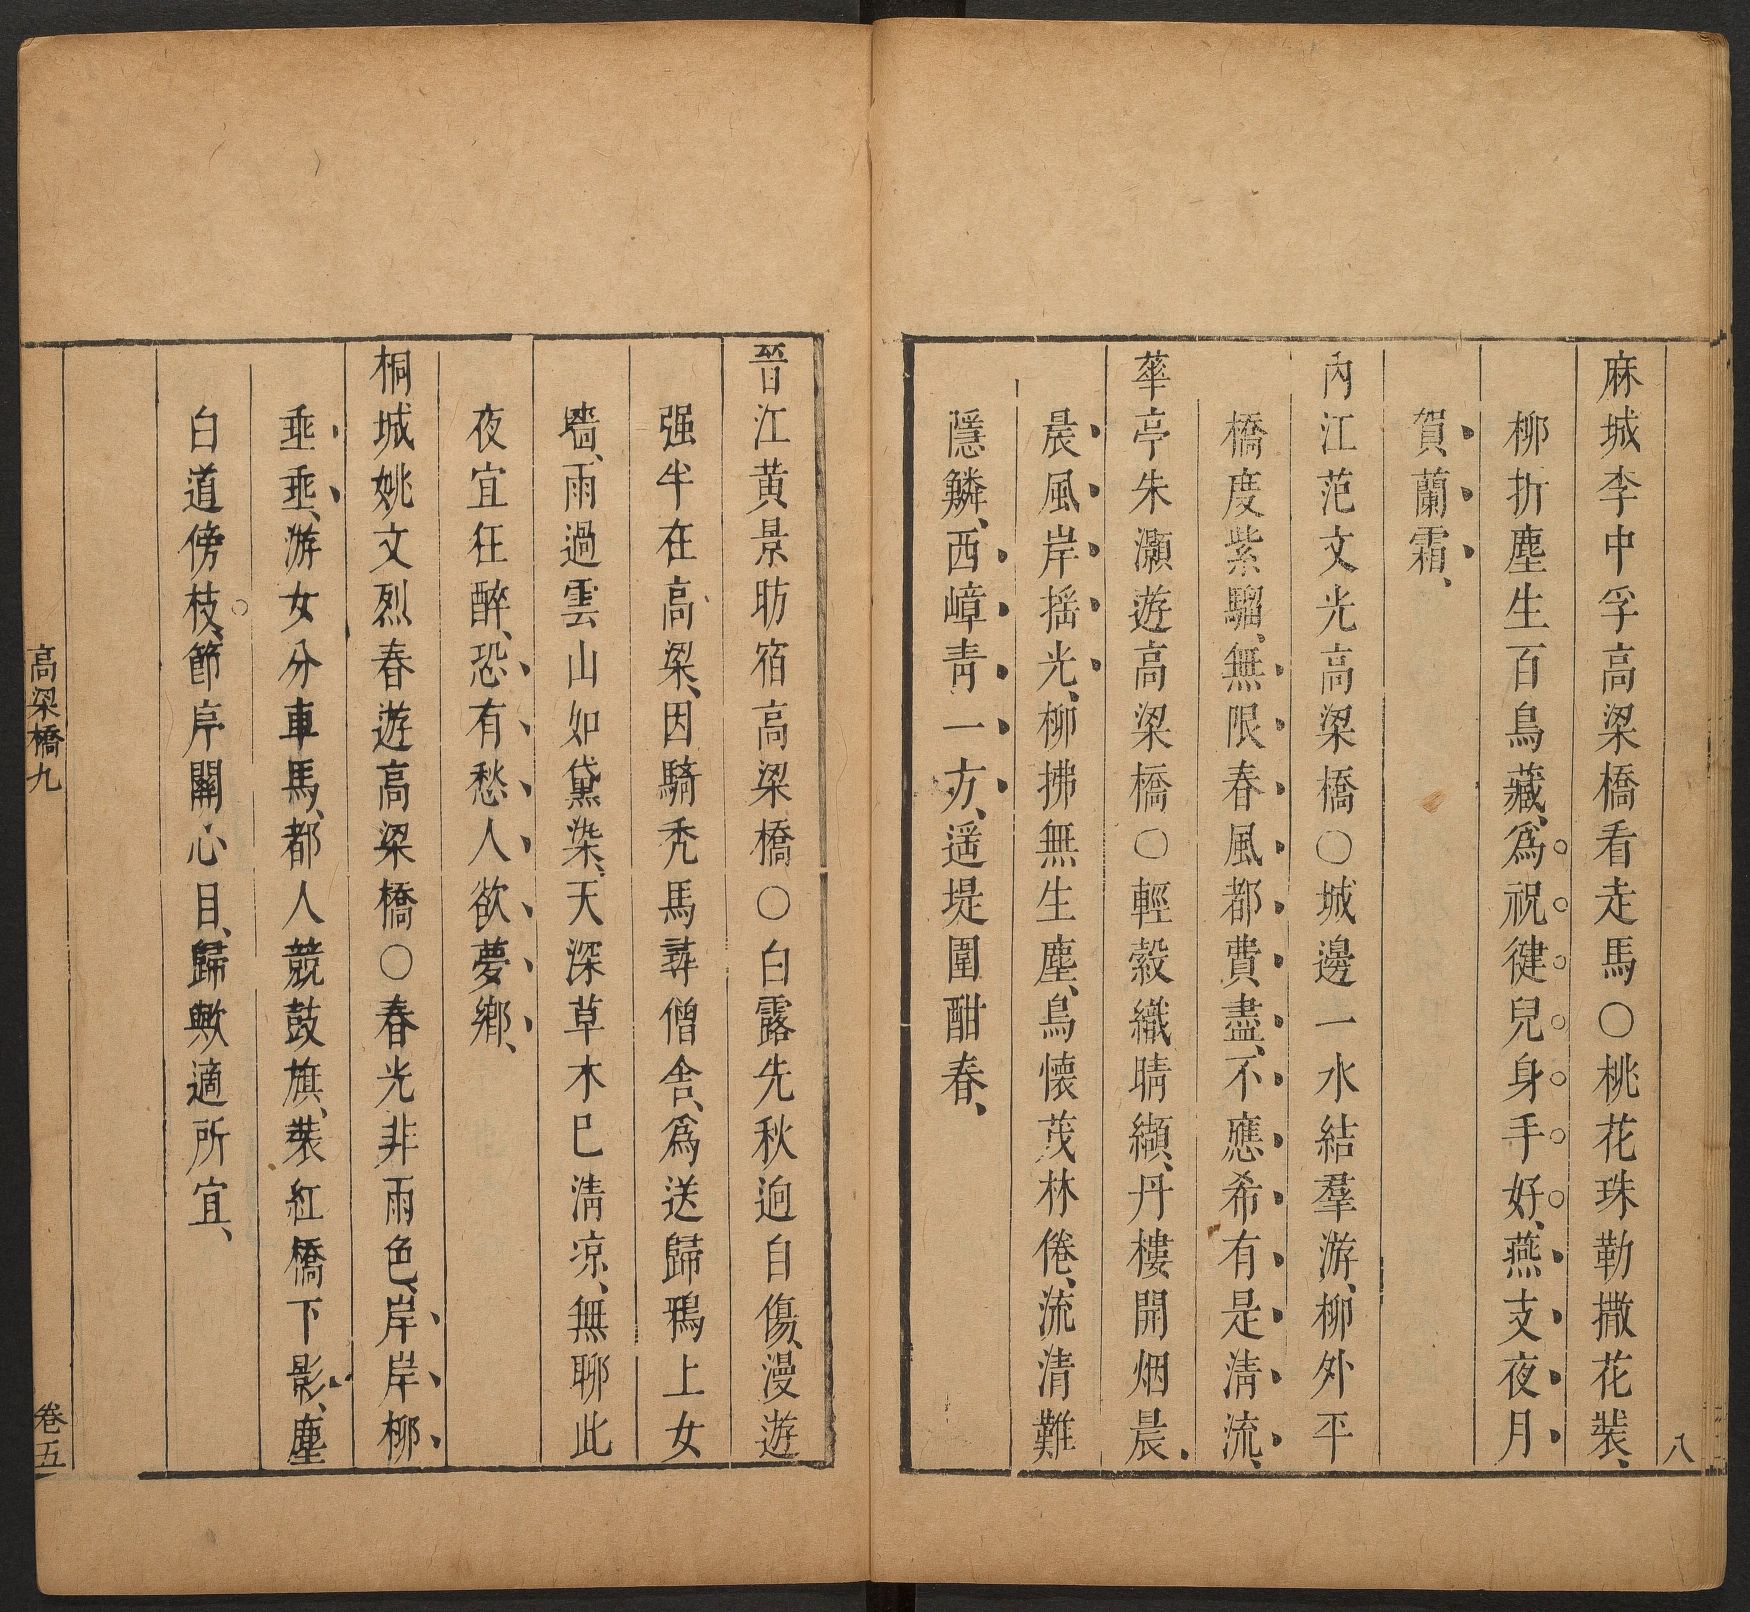 麻城李中孚高梁橋看走馬〇桃花珠勒撒花裝、
柳折塵生百鳥藏、爲祝健兒身手好、燕支夜月
賀蘭霜、
內江范文光高梁橋〇城邊一水結羣游、柳外平
橋度紫騮、無限春風都費盡、不應希有是淸流、
華亭朱灝遊高梁橋〇輕縠織睛纈、丹樓開烟晨、
晨風岸揺光、柳拂無生塵、鳥懷茂林倦、流清難
隱鱗、西嶂靑一方、遥堤圍酣春、
八
晉江黃景昉宿高梁橋〇白露先秋逈自傷、漫遊
强半在高梁、因騎秃馬尋僧舍、爲送歸鴉上女
墻、雨過雲山如黛染、天深草木巳淸凉、無聊此
夜宜狂醉、恐有愁人欲夢鄉、
桐城姚文烈春遊高梁橋〇春光非雨色、岸岸柳
垂垂、游女分車馬、都人競鼓旗、裝紅橋下影、塵
白道傍枝、節序關心目、歸歟適所宜、
高梁橋九
卷五